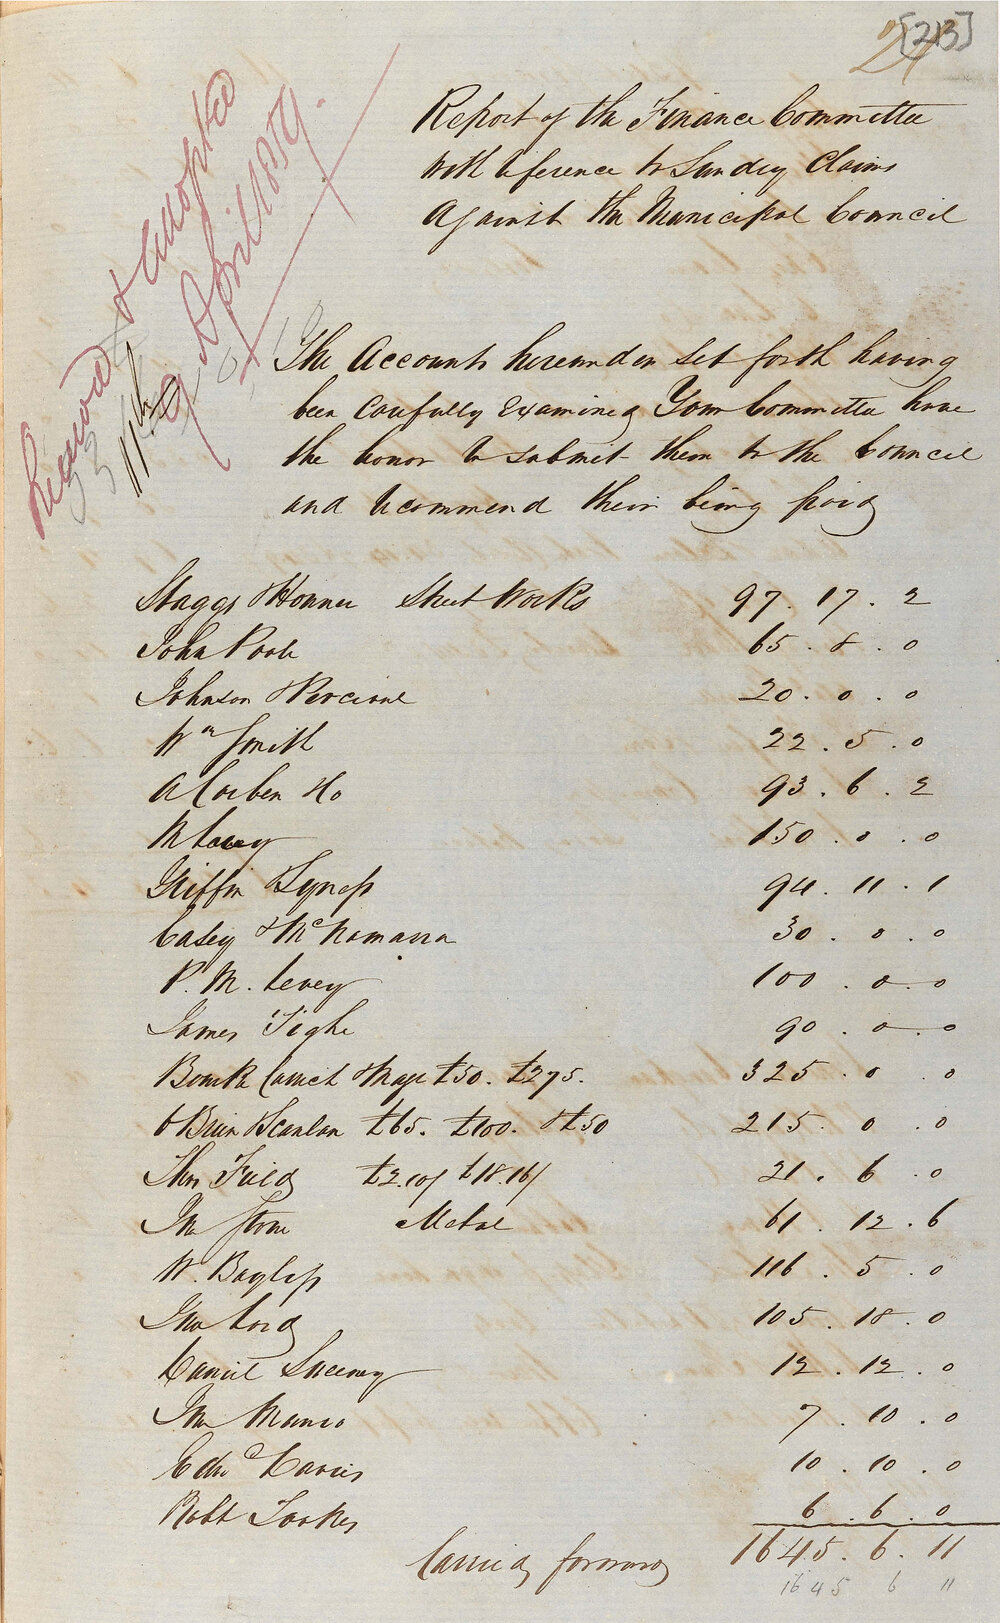 [213]
Report of the Finance Committee
with reference to Sundry Claims
Against the Municipal Council
Received & Adopted
9 April 1859
11th
The Accounts hereunder set forth having
been Carefully Examined Your Committee have
the honor to submit them to the Council
and recommend their being paid
Staggs & Honner Street Works 97.17.2
John Poole 65.8.0
Johnson & Percival 20.0.0
Wm Smith 22.5.0
A Corben Do 93.6.2
150.0.0
Griffin & Lyness 94.11.1
Casey & McNamara 30.0.0
P. M. Levey 100.0.0
James Tighe 90.0.0
£50. £275. 325.0.0
OBrien & Scanlan £65. £100. & £50 215.0.0
Thos Field £2.10/ £18.16/ 21.6.0
Jno Stone Metal 61.12.6
W. Bayless 116.5.0
Jno Lord 105.18.0
Daniel Sweeney 12.12.0
Jno Munro 7.10.0
Edwd Davies 10.10.0
Robt Tookes 6.6.0
Carried forward 1645.6.11
1645 6 11